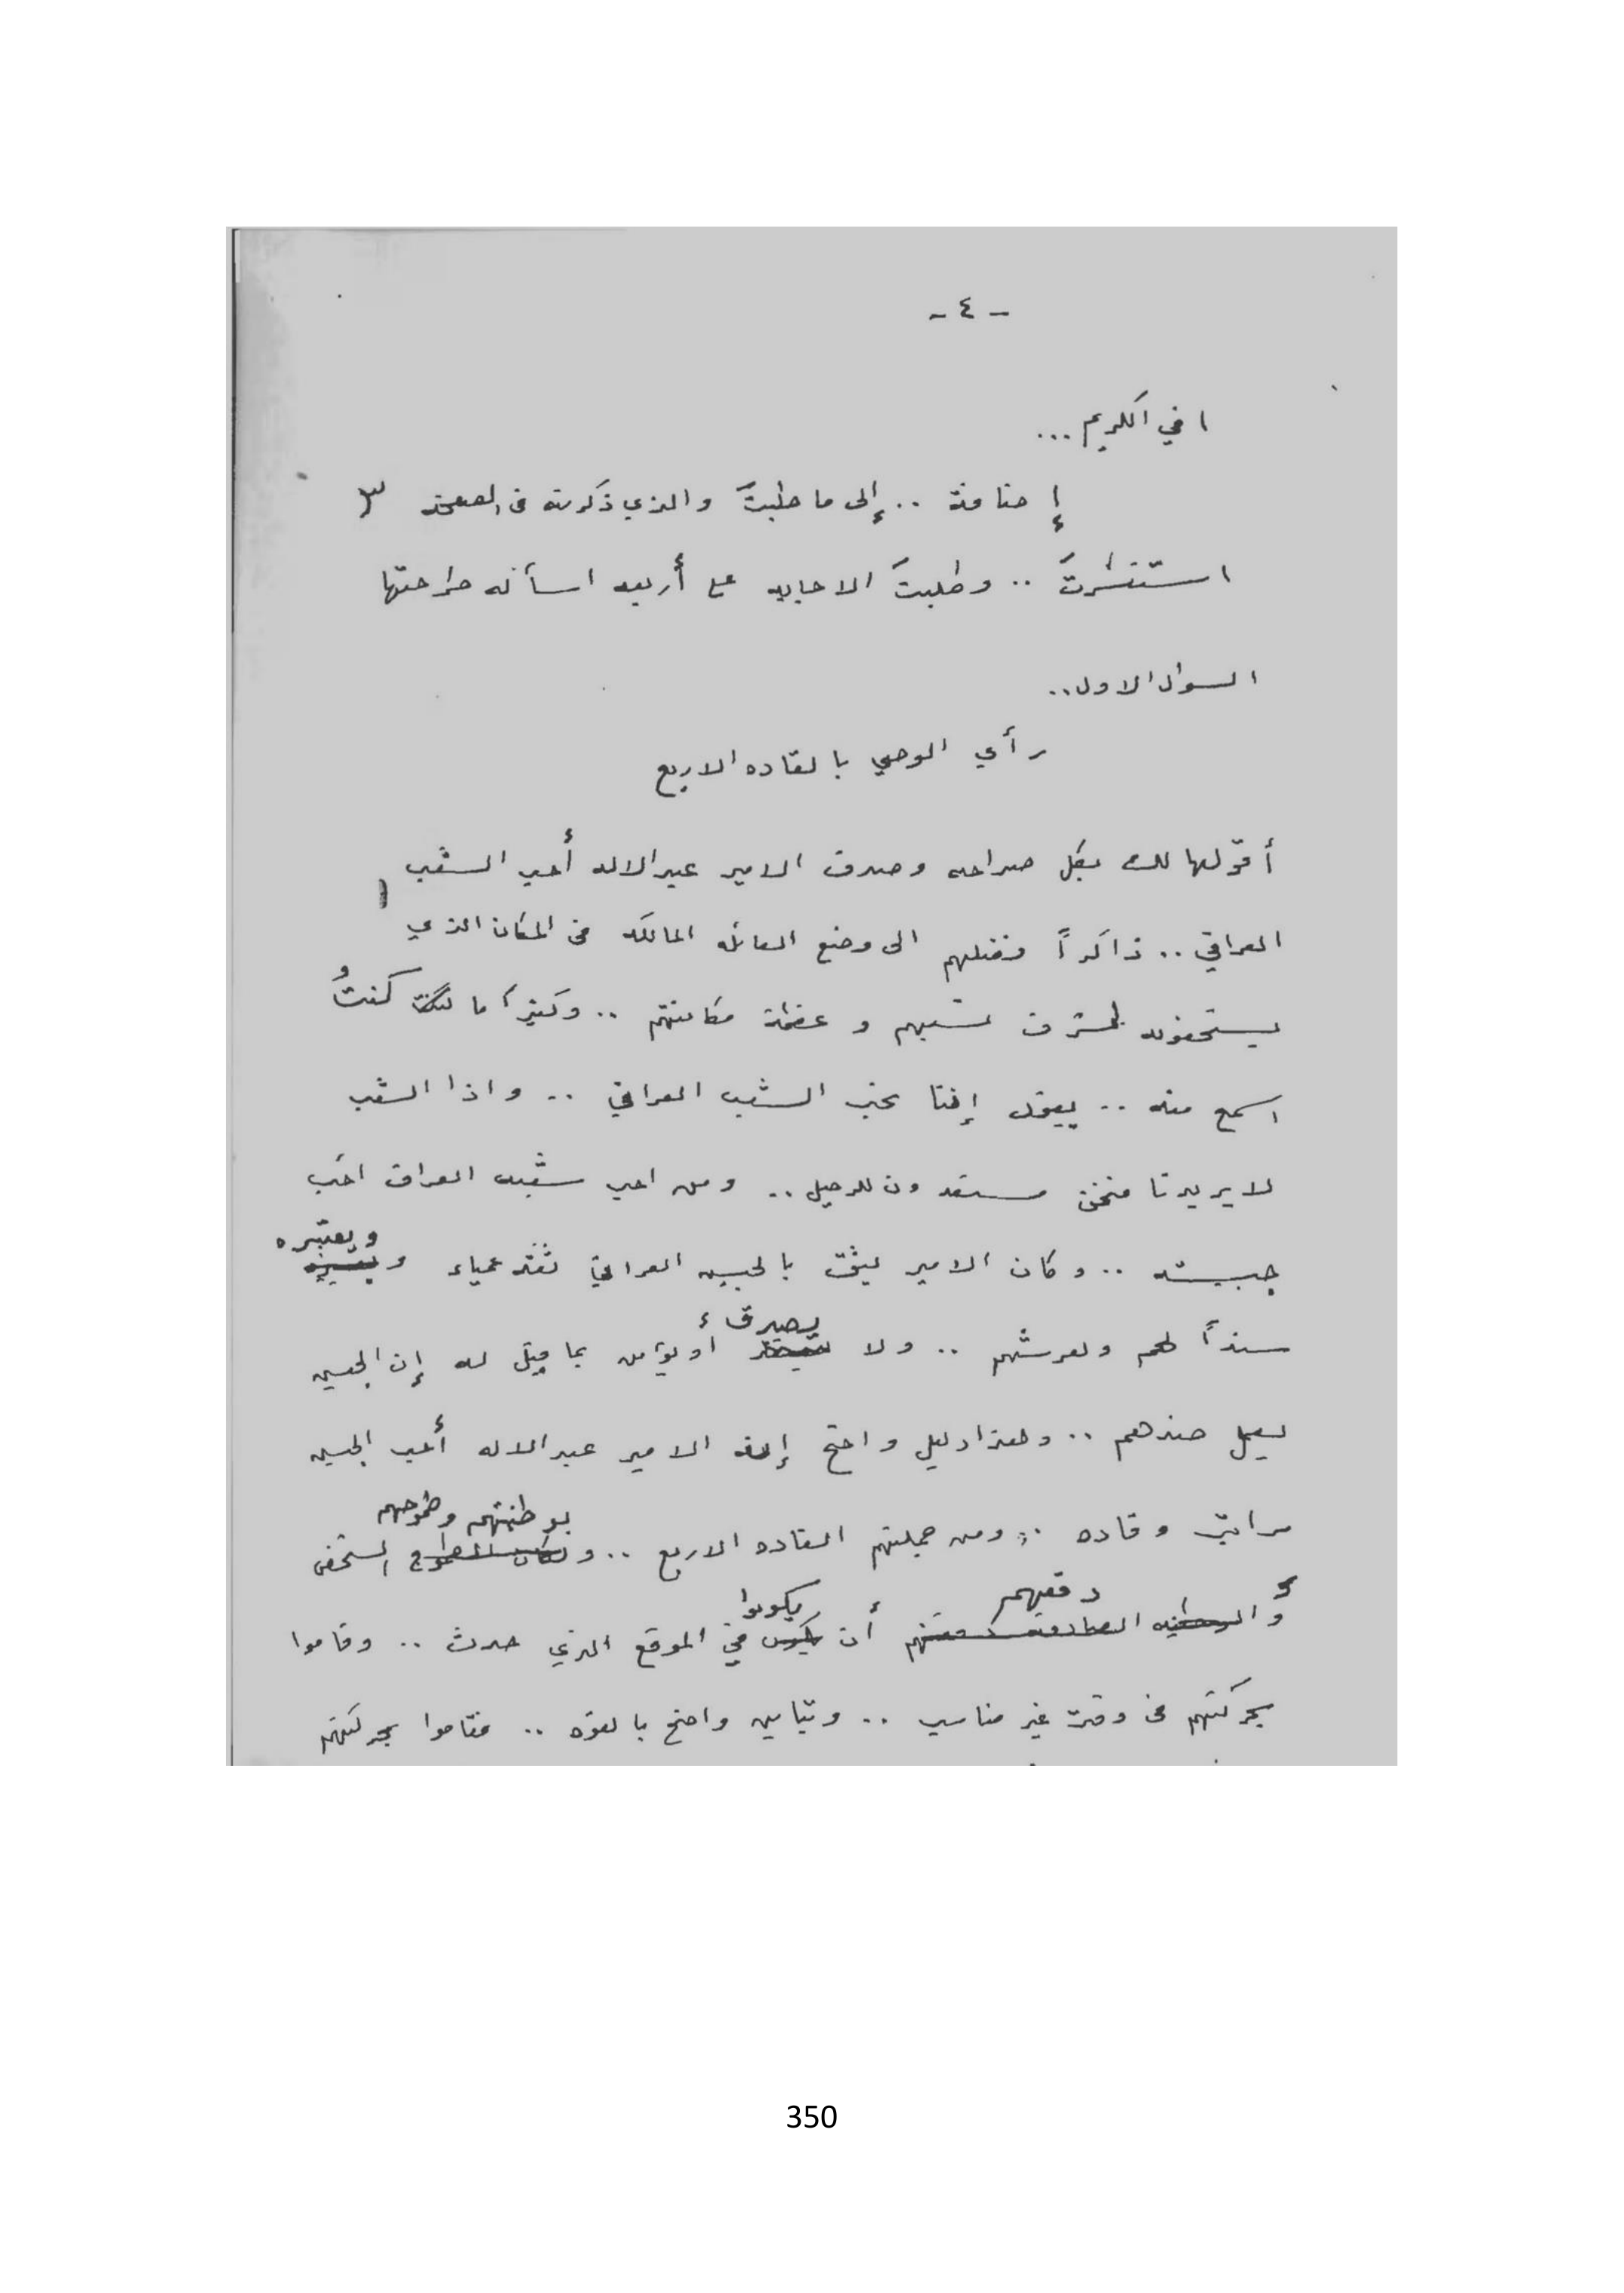 - ٤ -
اخي الكريم ...
إضافة .. إلى ما طلبتَ والذي ذكرته في الصفحة ٣
استفسرتَ .. وطلبتَ الاجابه على أربعه اسأله طرحتها
السؤال الاول ..
رأي الوصي بالقاده الاربع
أقولها لك بكل صراحه وصدق الامير عبدالاله أحب الشعب
العراقي .. ذاكراً فضلهم الى وضع العائله المالكه في المكان الذي
يستحقونه لشرف نسبهم و عظمة مكانتهم .. وكثيراً ما كنتُ
اسمع منه .. يقول إننا نحب الشعب العراقي .. واذا الشعب
لا يريدنا فنحن مستعدون للرحيل .. ومن احب شعب العراق احب
جيشه .. وكان الامير يثق بالجيش العراقي ثقة عمياء و ويعتبره
سنداً لهم ولعرشهم .. ولا يصدق أو يؤمن بما قيل له إن الجيش
يعمل ضدهم .. وهذا دليل واضح إن الامير عبدالاله أحب الجيش
مراتب وقاده .. ومن جملتهم القاده الاربع .. و بوطنيتهم وطموحهم
دفعهم أن يكونوا في الموقع الذي حدث .. وقاموا
بحركتهم في وقت غير مناسب .. وتباين واضح بالقوه .. فقاموا بحركتهم
350